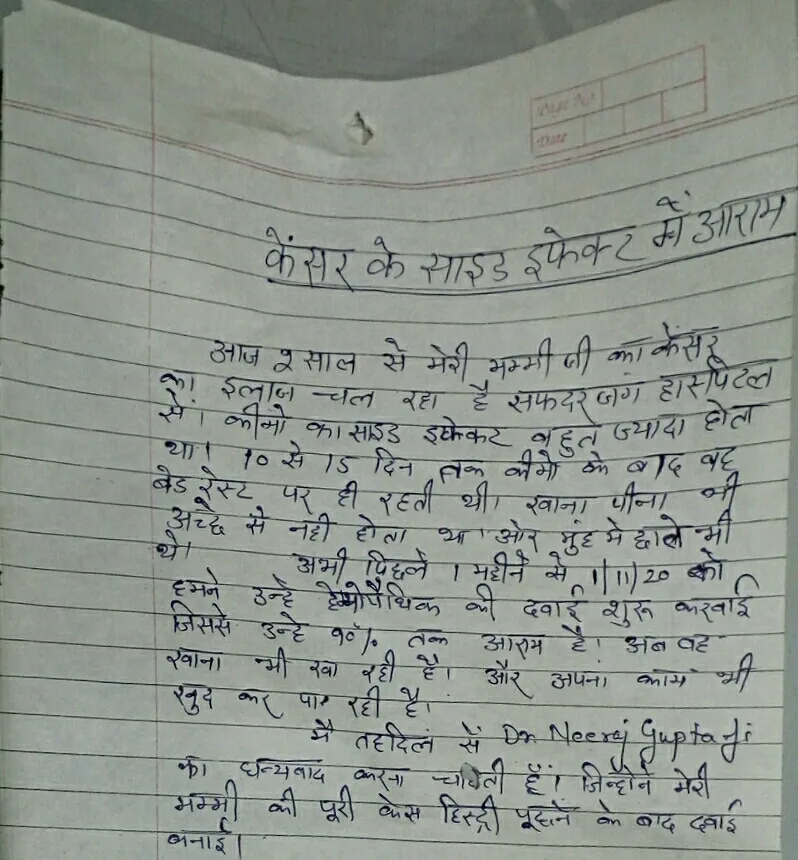 Page No.
Date
केंसर के साइड इफेक्ट में आराम
आज 2 साल से मेरी मम्मी जी का कैंसर
का इलाज चल रहा है सफदर जंग हास्पिटल
से। कीमो का साइड इफेकट बहुत ज्यादा होता
था। 10 से 15 दिन तक कीमो के बाद वह
बेड रेस्ट पर ही रहती थी। खाना पीना भी
अच्छे से नही होता था। और मुंह मे छाले भी
थे। अभी पिछले 1 महीने से 1/11/20 को
हमने उन्हे होम्योपैथिक की दवाई शुरू करवाई
जिससे उन्हे 90% तक आराम है। अब वह
खाना भी खा रही है। और अपना काम भी
खुद कर पा रही है।
मै तहदिल से Dr. Neeraj Gupta Ji
का धन्यवाद करना चाहती हूँ। जिन्होने मेरी
मम्मी की पूरी केस हिस्ट्री पूछने के बाद दवाई
बनाई।